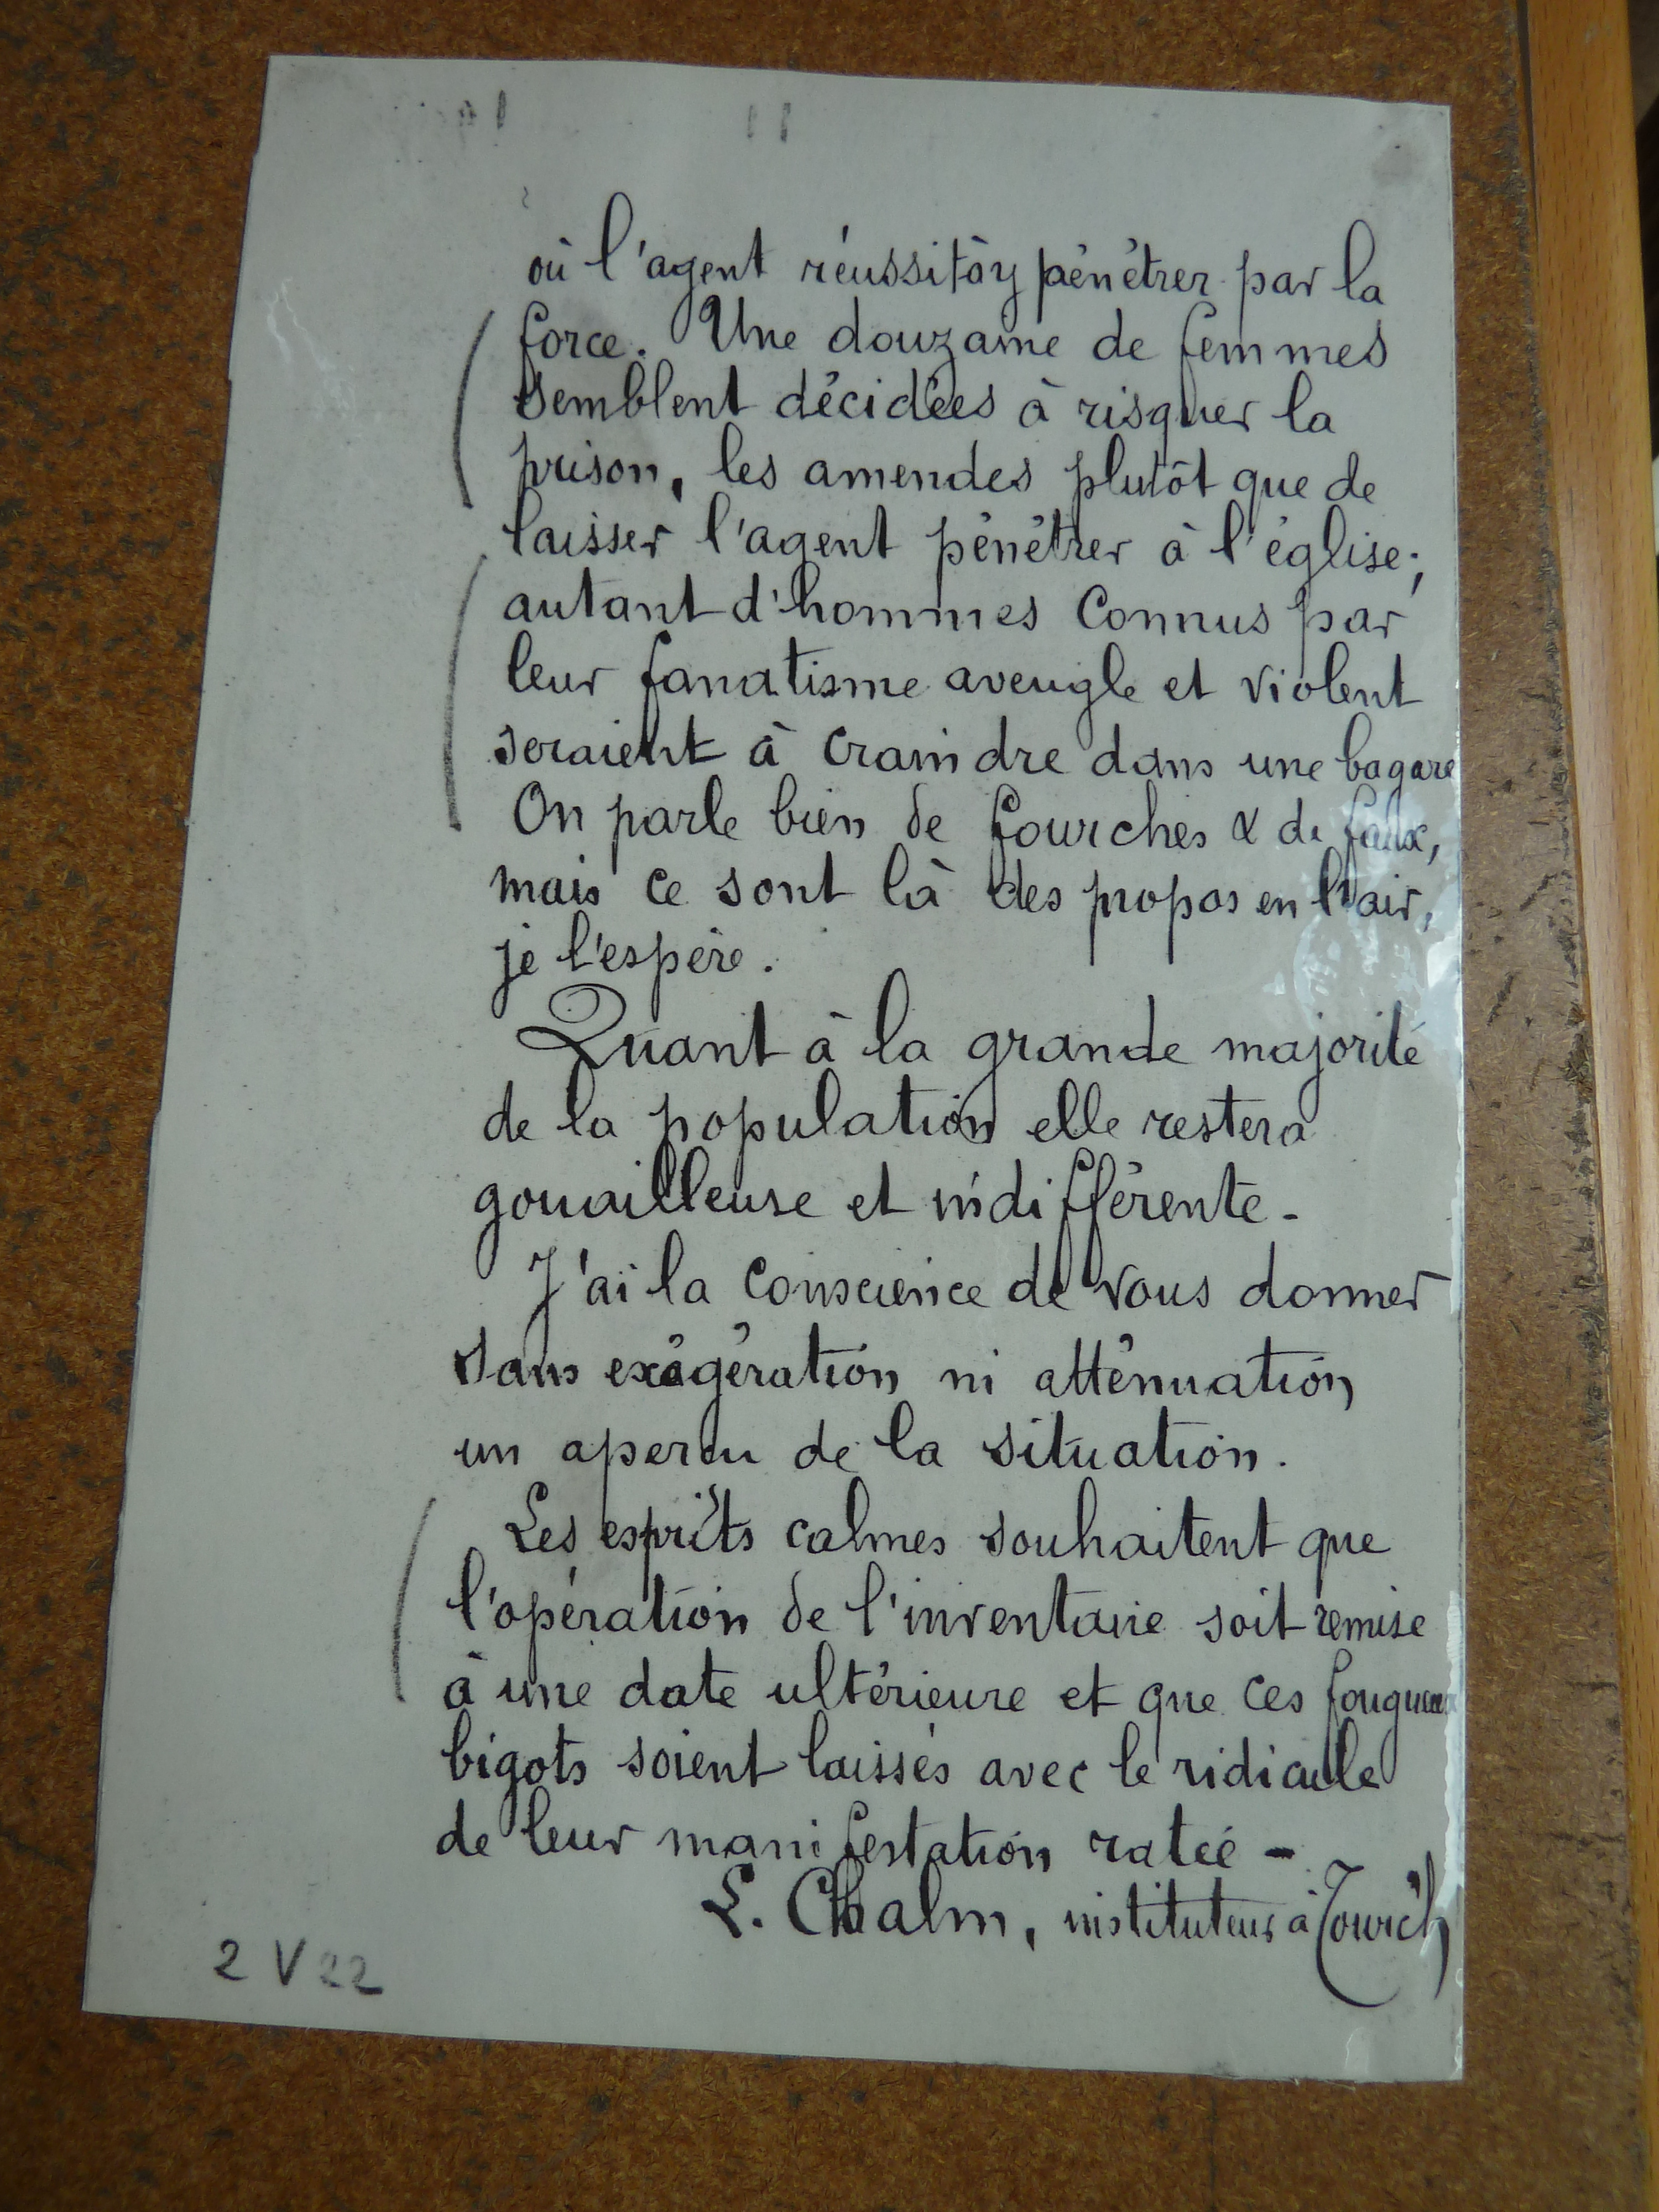 où l'agent réussit à y pénétrer par la
force. Une douzaine de femmes
semblent décidées à risquer la
prison, les amendes plutôt que de
laisser l'agent pénétrer à l'église;
autant d'hommes connus par
leur fanatisme aveugle et violent
seraient à craindre dans une bagare
On parle bien de fourches & de faux,
mais ce sont là des propos en l'air,
je l'espère.
Quant à la grande majorité
de la population elle restera
gouailleuse et indifférente -
J'ai la conscience de vous donner
sans exagération ni atténuation
un apercu de la situation.
Les esprits calmes souhaitent que
l'opération de l'inventaire soit remise
à une date ultérieure et que ces fougueux
bigots soient laissés avec le ridicule
de leur manifestation ratée -
L. Chalm, instituteur à Tourc'h
2 V 22